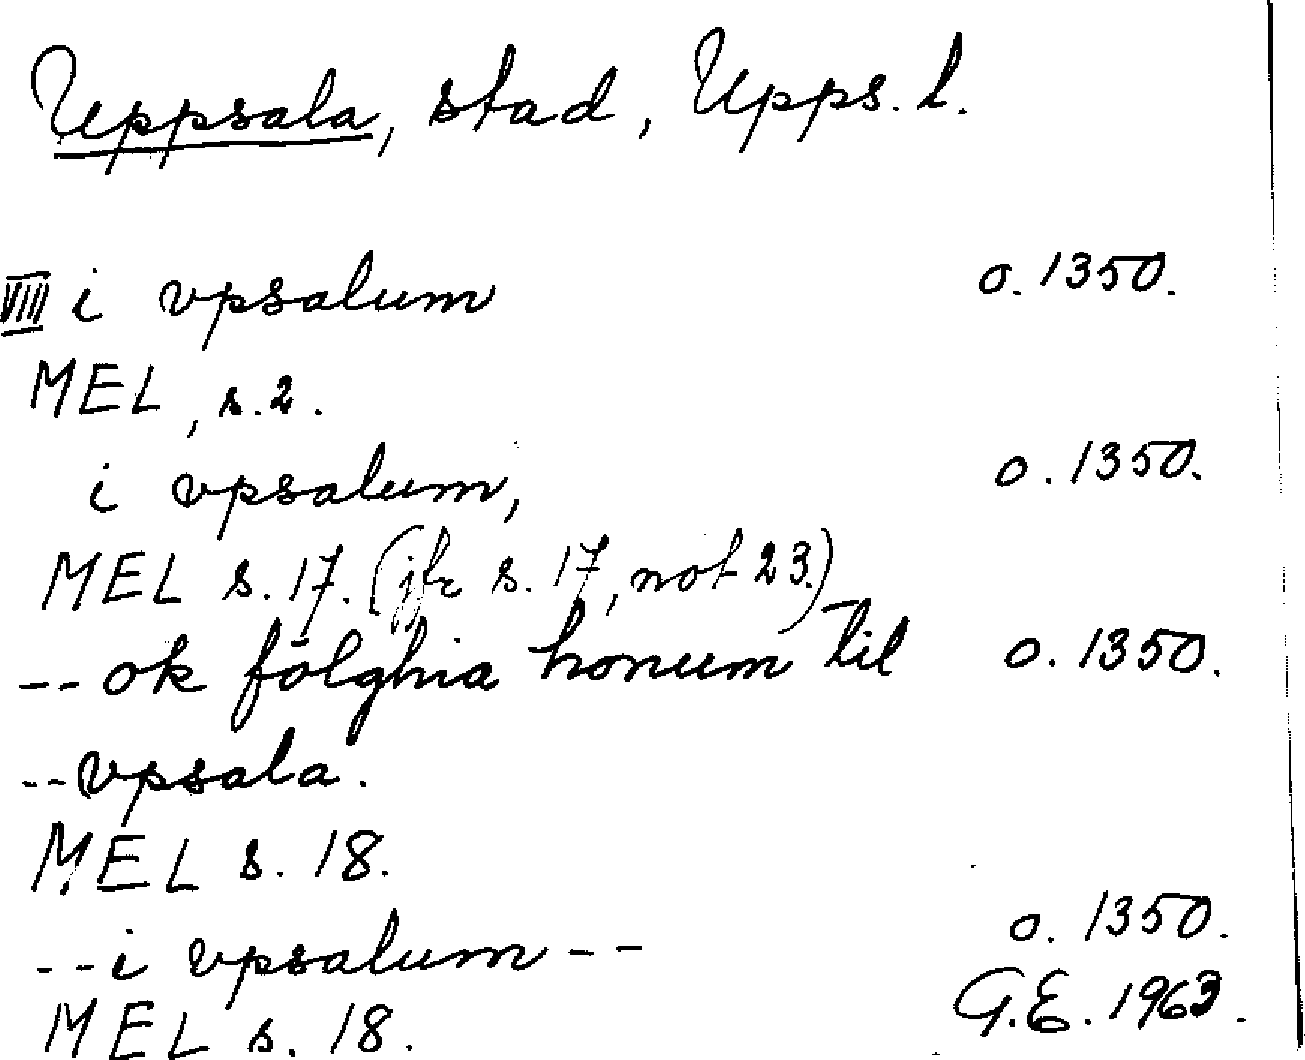 Uppsala, stad, Upps. l.
VIII i vpsalum o. 1350.
MEL, s. 2.
i vpsalum, o. 1350.
MEL s. 17. (jfr s. 17, not 23.)
-- ok fölghia honum til o. 1350.
-- vpsala.
MEL s. 18.
-- i vpsalum -- o. 1350.
MEL s. 18. G.E. 1963.